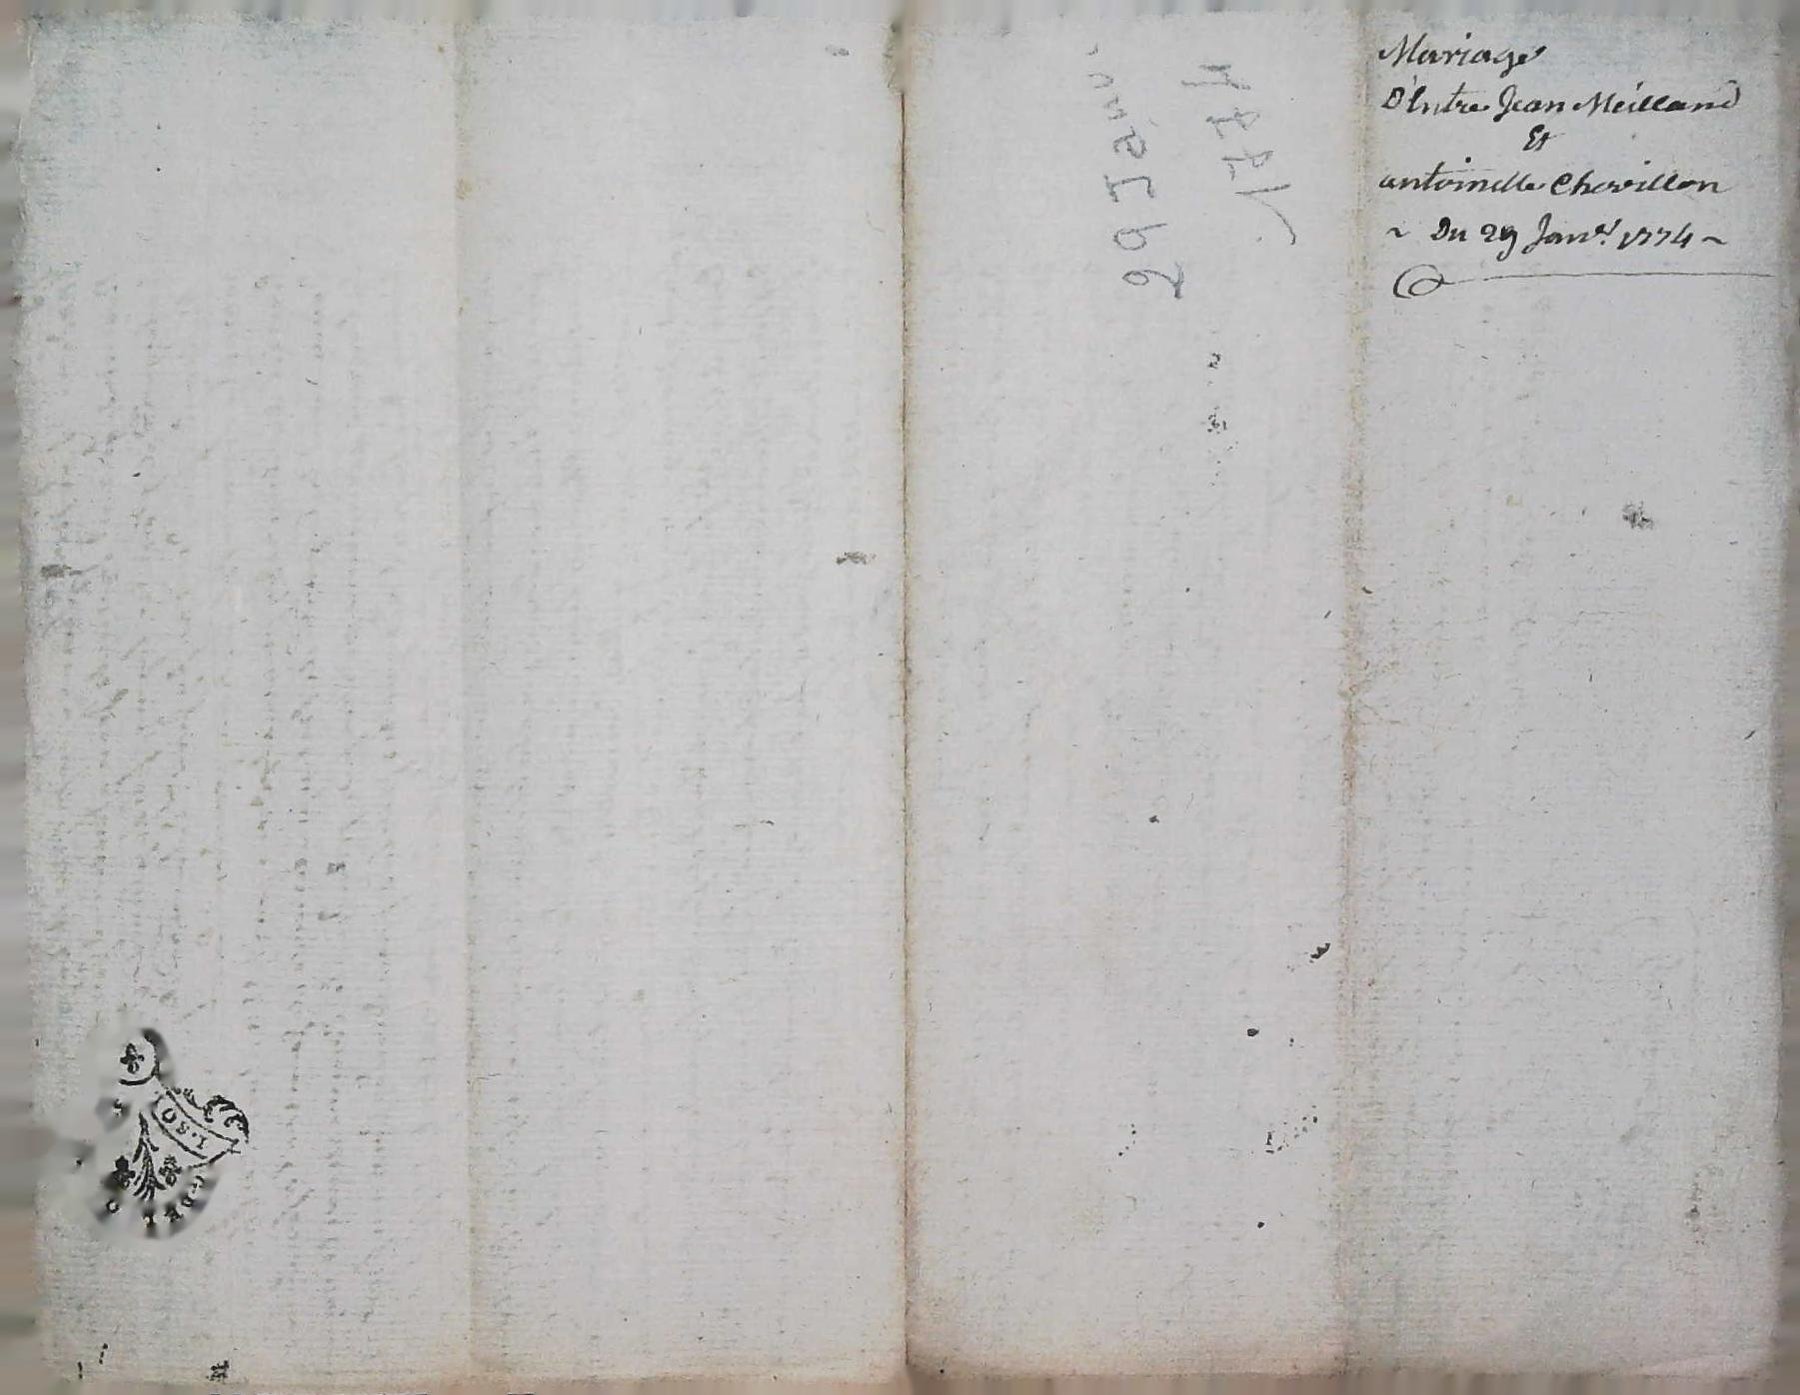 Mariage
D'Entre Jean Meilland
Et
antoinette Chovillon
~ Du 29 Janer. 1774 ~
29 Janv.
1774
1.SO
G·DE L